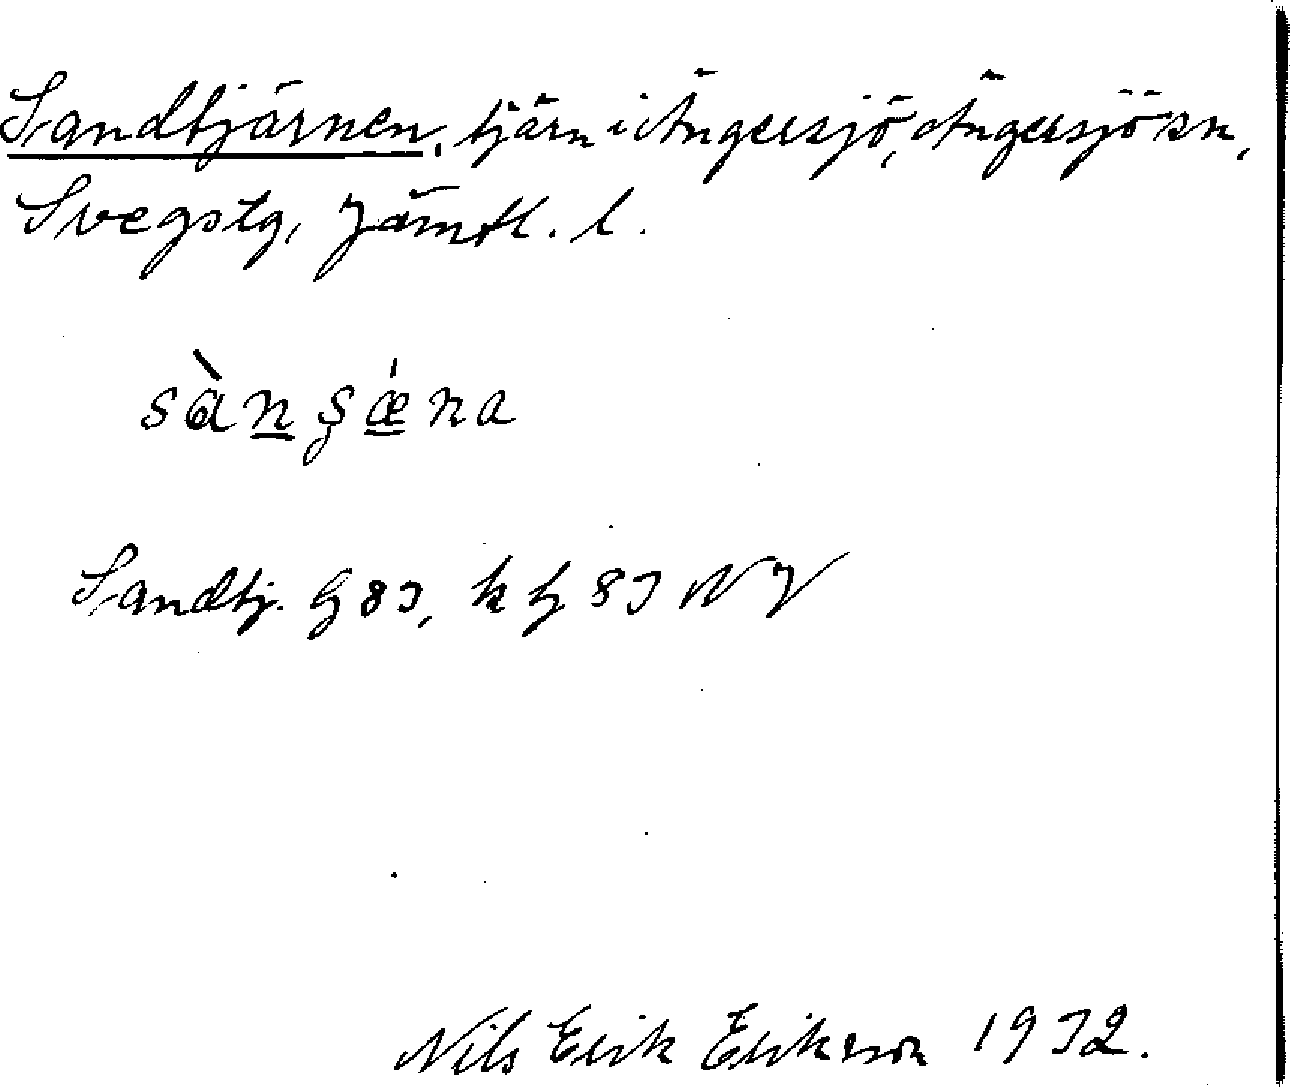 Sandtjärnen, tjärn i Ängersjö, Ängersjö sn,
Svegs tg, Jämtl. l.
sànʂǽna
Sandtj. G 83, k G 83 NV
Nils Erik Erikson 1932.